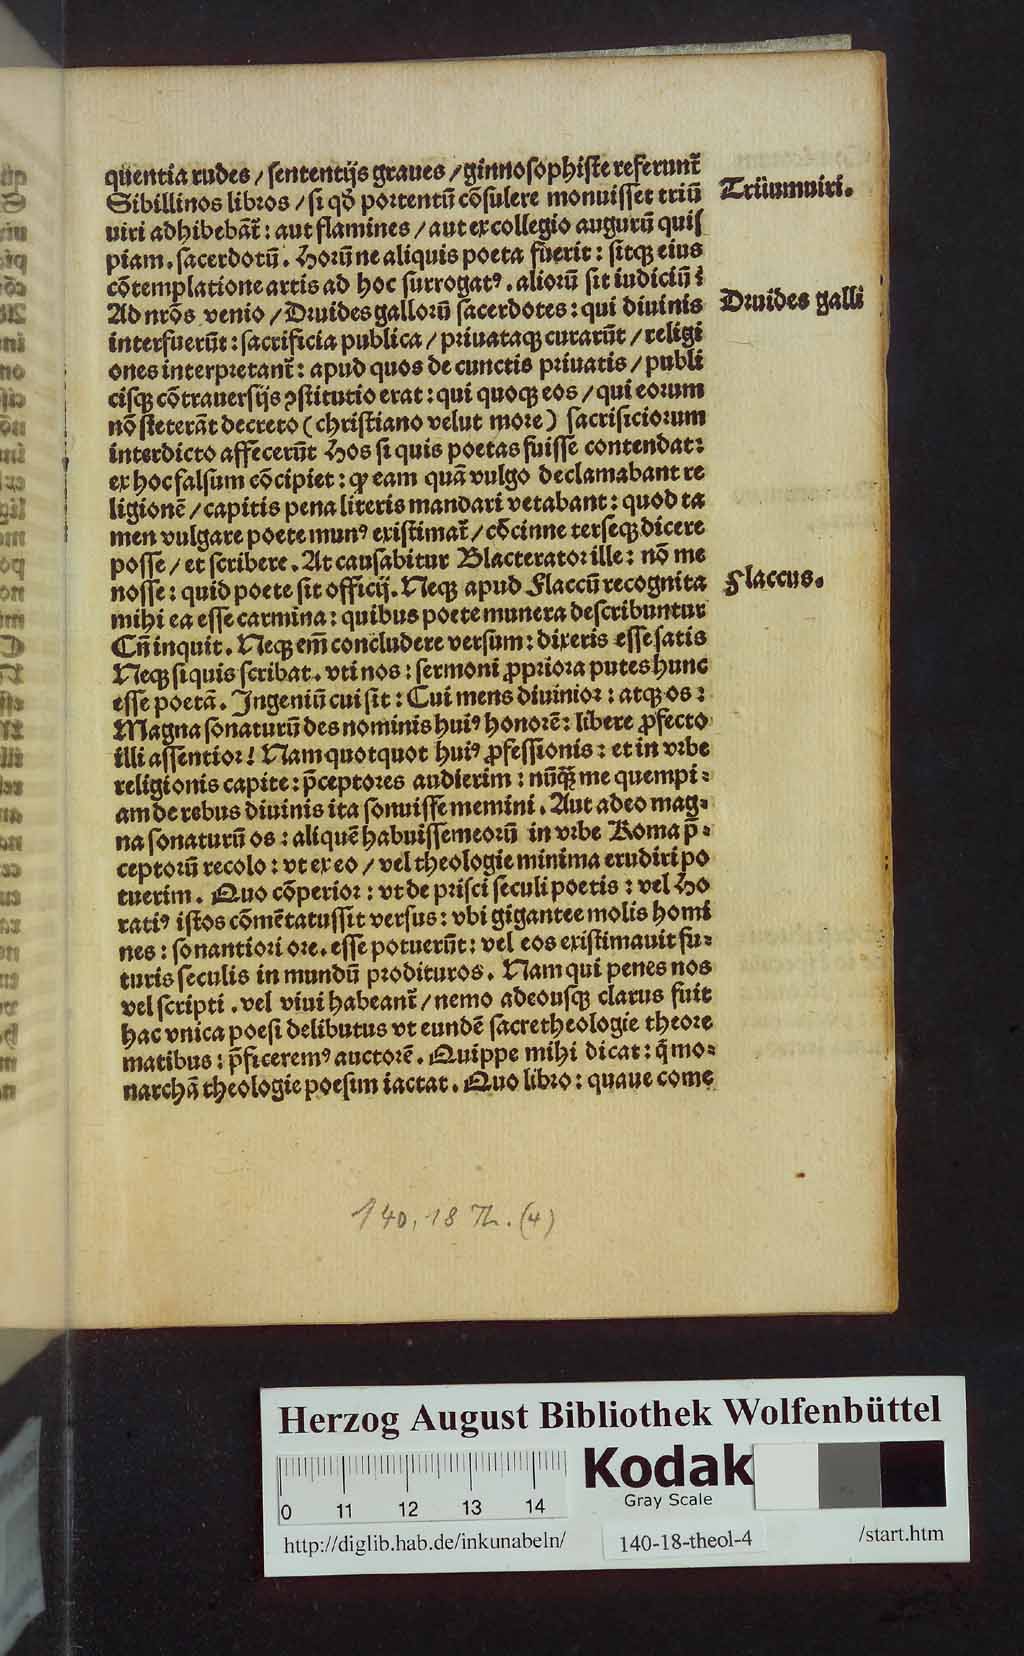 quentia rudes / sententijs graues / ginnosophiste referunt̄
Sibillinos libros / si qđ portentū cōsulere monuisset triū
Triiumuiri.
uiri adhibebāt̄ : aut flamines / aut ex collegio augurū quiſ
piam. sacerdotū. Horū ne aliquis poeta fuerit : sitqȝ eius
cōtemplatione artis ad hoc surrogatꝰ. aliorū sit iudiciū :
Ad nr̄os venio / Druides gallorū sacerdotes : qui diuinis
Druides galli
interfuerūt : sacrificia publica / priuataqȝ curarūt / religi
ones interpretant̄ : apud quos de cunctis priuatis / publi
cisqȝ cōtrauersijs ↄstitutio erat : qui quoqȝ eos / qui eorum
nō steterāt decreto (christiano velut more) sacrificiorum
interdicto affecerūt Hos si quis poetas fuisse contendat:
ex hoc falsum cōcipiet : ꝙ eam quā vulgo declamabant re
ligionē / capitis pena literis mandari vetabant : quod ta
men vulgare poete munꝰ existimat̄ / cōcinne terseqȝ dicere
posse / et scribere. At causabitur Blacterator ille : nō me
nosse : quid poete sit officij. Neqȝ apud Flaccū recognita
Flaccus.
mihi ea esse carmina : quibus poete munera describuntur
Cn̄ inquit. Neqȝ em̄ concludere versum : dixeris esse satis
Neqȝ si quis scribat. vti nos : sermoni ꝓpriora putes hunc
esse poetā. Ingeniū cui sit : Cui mens diuinior : atqȝ os :
Magna sonaturū des nominis huiꝰ honorē : libere ꝓfecto
illi assentior! Nam quotquot huiꝰ ꝓfessionis : et in vrbe
religionis capite : p̄ceptores audierim : nūqȝ̄ me quempi⸗
am de rebus diuinis ita sonuisse memini. Aut adeo mag⸗
na sonaturū os : aliquē habuisse meorū in vrbe Roma p̄⸗
ceptorū recolo : vt ex eo / vel theologie minima erudiri po
tuerim. Quo cōperior : vt de prisci seculi poetis : vel Ho
ratiꝰ istos cōmētatus sit versus : vbi gigantee molis homi
nes : sonantiori ore. esse potuerūt : vel eos existimauit fu⸗
turis seculis in mundū prodituros. Nam qui penes nos
vel scripti. vel viui habeant̄ / nemo adeousqȝ clarus fuit
hac vnica poesi delibutus vt eundē sacre theologie theore
matibus : p̄ficeremꝰ auctorē. Quippe mihi dicat : q̄ mo⸗
narchā theologie poesim iactat. Quo libro : quaue come
140,18 Th. (4)
Herzog August Bibliothek Wolfenbüttel
Kodak
Gray Scale
0 11 12 13 14
http://diglib.hab.de/inkunabeln/
140-18-theol-4
/start.htm